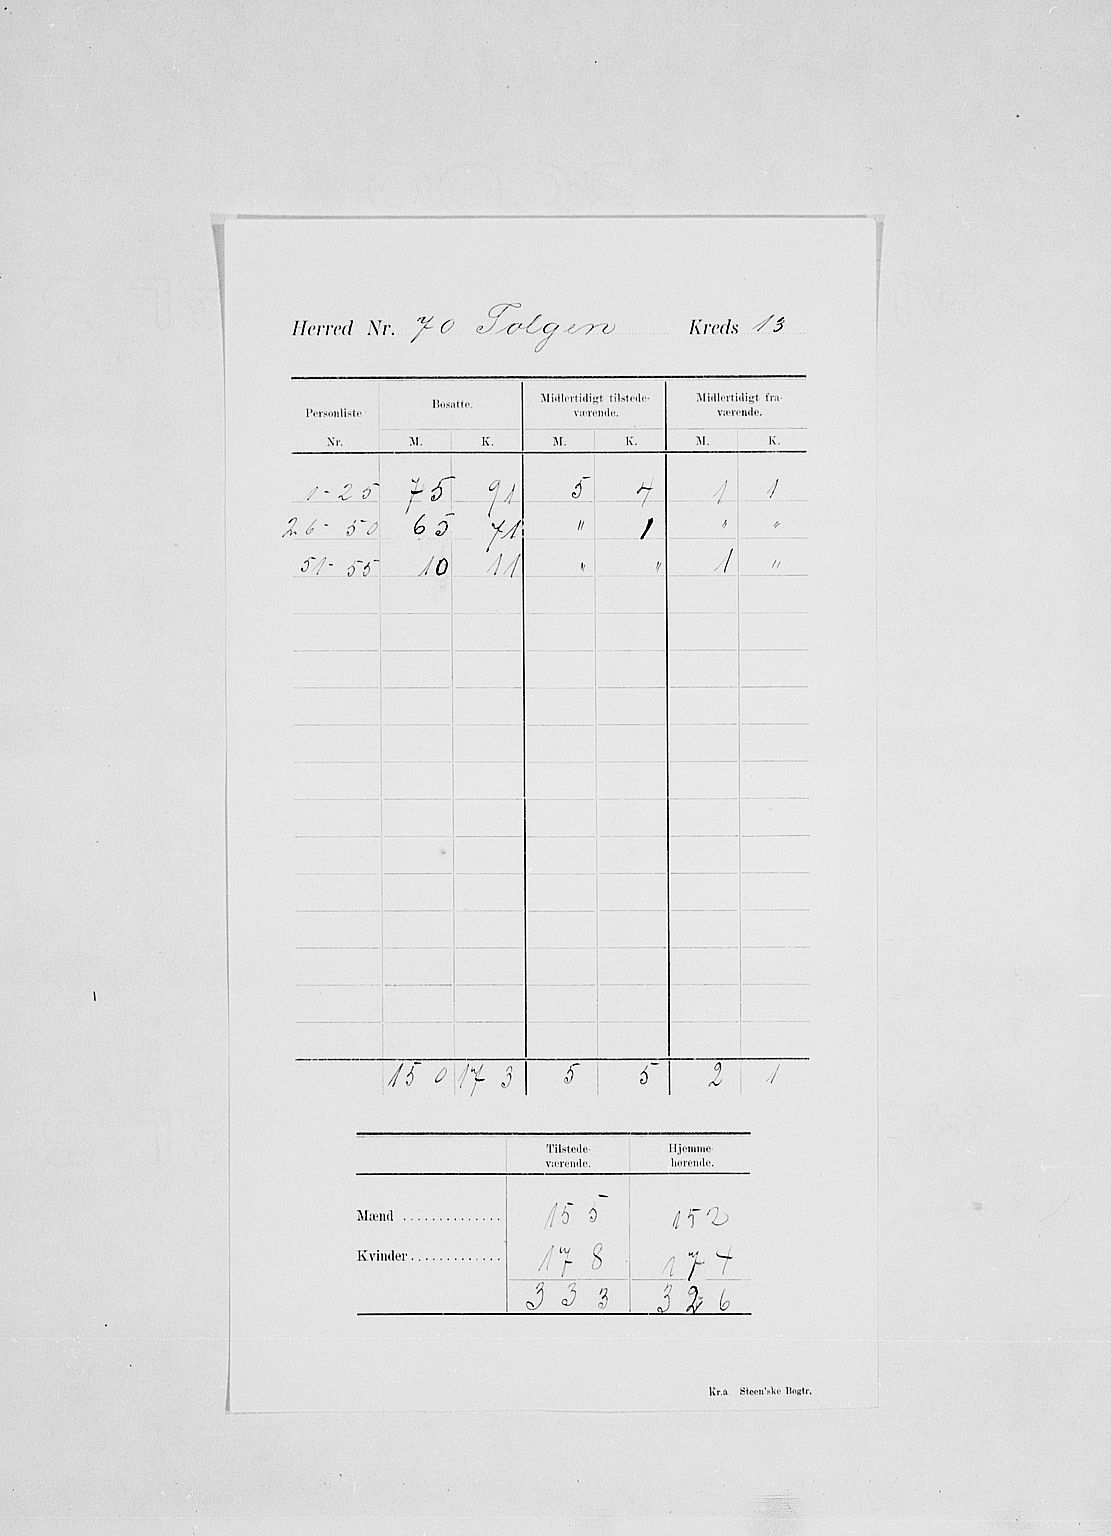 Herred Nr. 70 Tolgen Kreds 13
Personliste Nr. Bosatte. Midlertidigt tilstede- værende. Midlertidigt fra- værende.
M. K. M. K. M. K.
1-25 75 91 5 4 1 1
26-50 65 71 " 1 " "
51-55 10 11 " " 1 "
150 173 5 5 2 1
Tilstede- værende. Hjemme- hørende.
Mænd .............. 155 152
Kvinder............. 178 174
333 326
Kr.a. Steen'ske Bogtr.